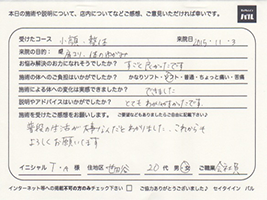 本日の施術や説明について、店内についてなどご感想、ご意見いただければ幸いです。
受けたコース 小顔・整体 来院日 2015.11.3
来院の目的: 肩コリ、体のゆがみ
お悩み解決のお力になれそうでしたか? すごく良かったです
施術の体への ご負担はいかがでしたか? かなりソフト・ソフト・普通・ちょっと痛い・苦痛
施術による体への変化は実感できましたか? できました
説明やアドバイスはいかがでしたか? とてもわかりやすかったです
施術を受けたご感想をお願いします。
普段の生活が大事なんだとわかりました。これからも
よろしくお願いします
イニシャル T・A 様 住地区 世田谷 20代 男・女 ご職業
インターネット等への掲載不可の方のみチェック下さい ご協力ありがとうございました♪ セイタイイン バル